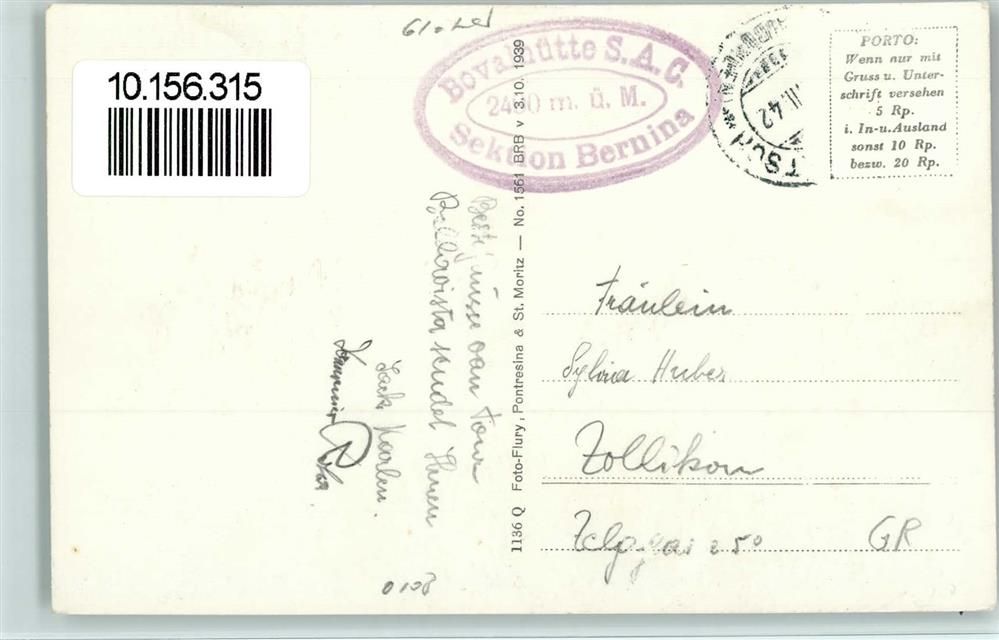 10.156.315
Bovalhütte S.A.C.
2460 m. ü. M.
Sektion Bernina
42
PORTO:
Wenn nur mit
Gruss u. Unter-
schrift versehen
5 Rp.
i. In-u.Ausland
sonst 10 Rp.
bezw. 20 Rp.
1136 Q Foto-Flury, Pontresina & St. Moritz — No. 1561 BRB v 3.10. 1939
Beste Grüsse von Tour
Bellavista sendet Ihnen
Fräulein
Sylvia Huber
Zollikon
GR
0108